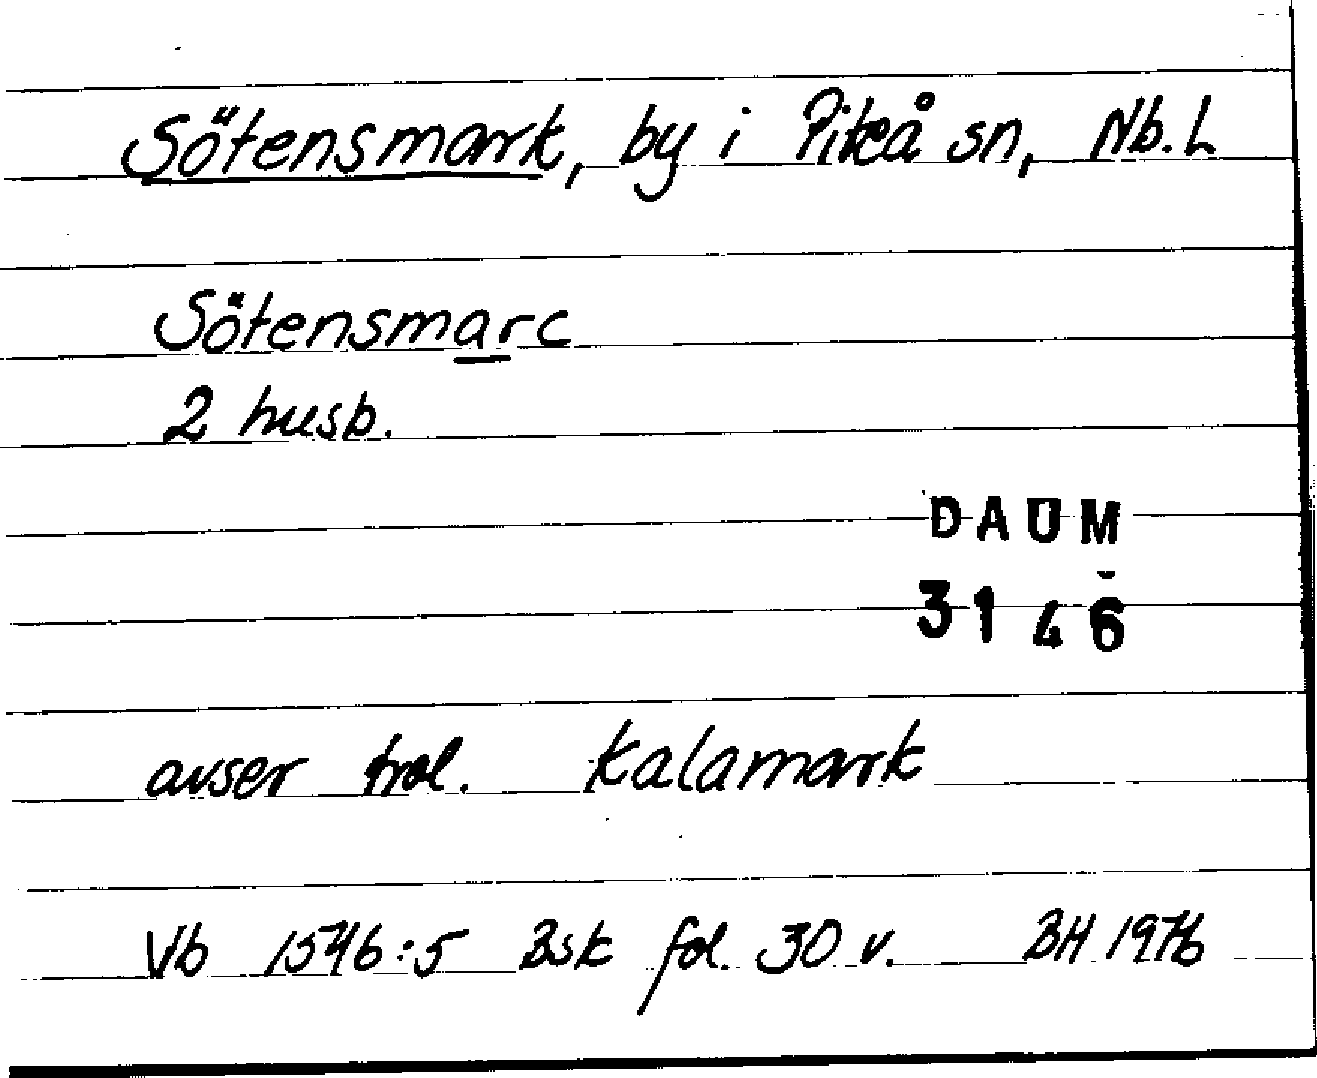 Sötensmark, by i Piteå sn, Nb. L
Sötensmarc
2 husb.
DAUM
3146
avser trol. Kalamark
Vb 1546:5 Bsk fol. 30 v. BH 1976